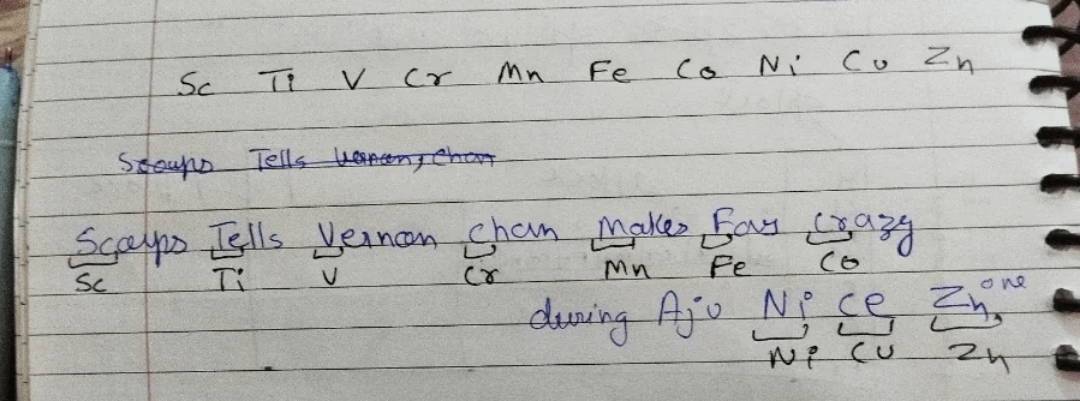 Sc Ti V Cr Mn Fe Co Ni Cu Zn
Scoups Tells Vernon, Chan
Scoups Tells Vernon Chan Makes Fans Crazy
Sc Ti V Cr Mn Fe Co
during Aju Ni ce Zn, one
Ni Cu Zn